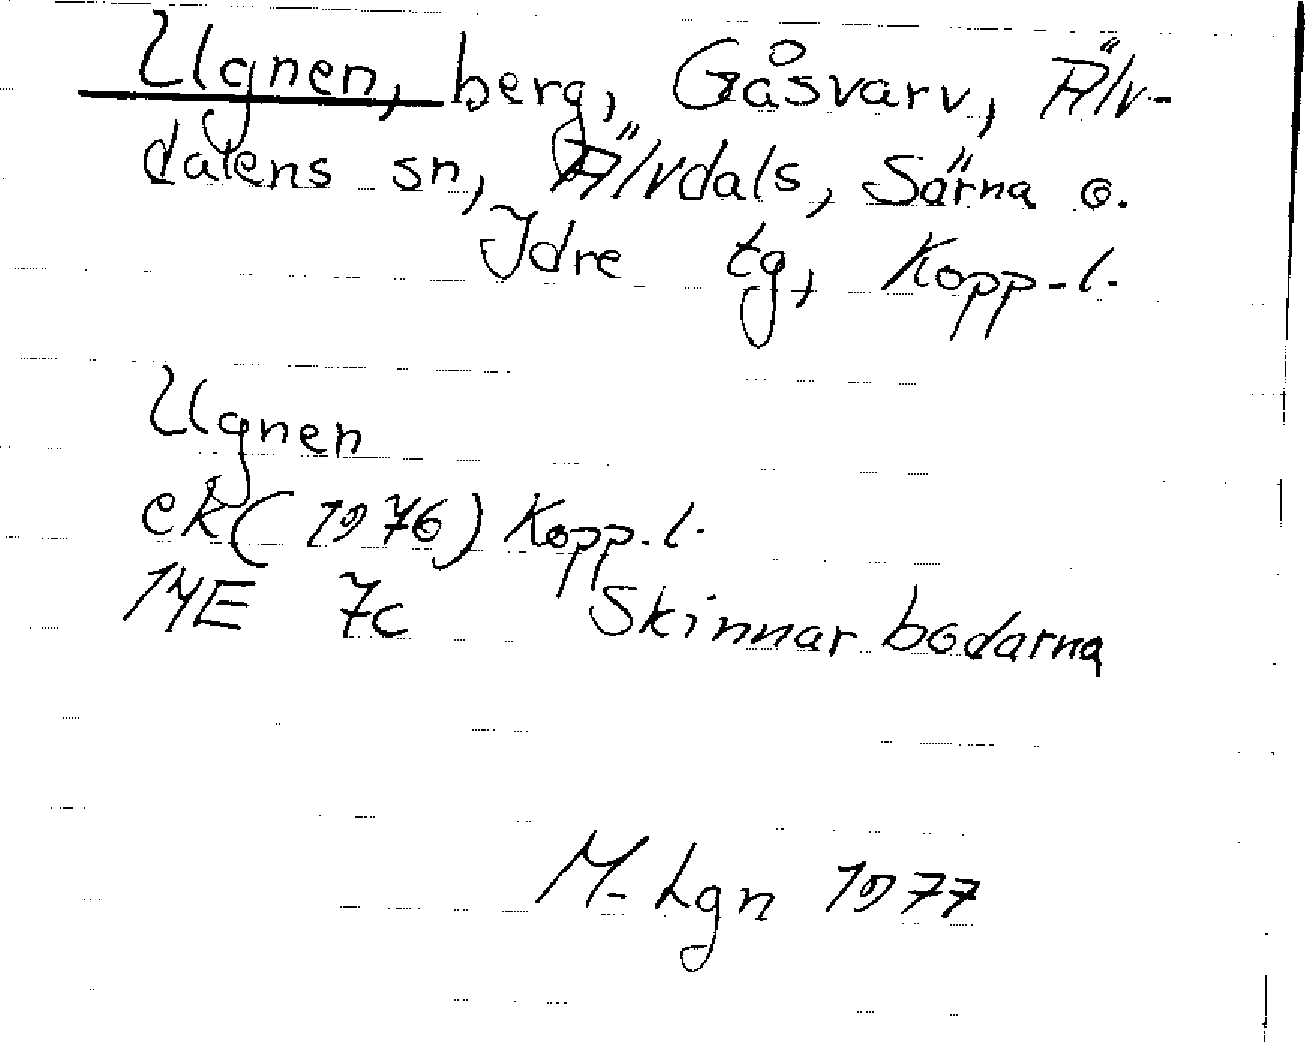 Ugnen, berg, Gåsvarv, Älv-
dalens sn, Älvdals, Särna o.
Idre tg, Kopp.l.
Ugnen
ek (1976) Kopp.l.
14E 7c Skinnarbodarna
M-Lgn 1977